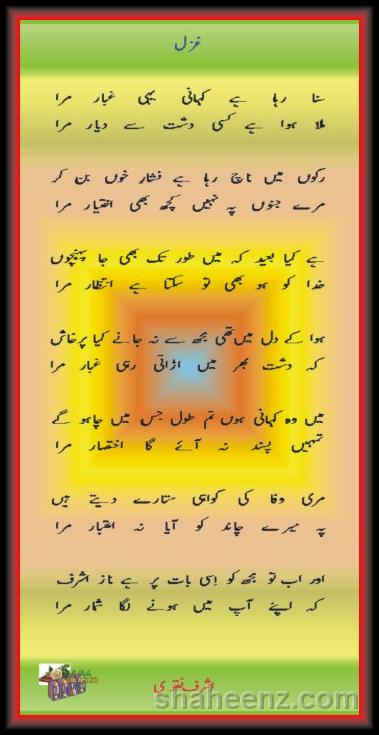 غزل
سنا رہا ہے کہانی یہی غبار مرا
ملا ہوا ہے کسی دشت سے دیار مرا
رگوں میں ناچ رہا ہے فشارِ خوں بن کر
مرے جنوں پہ نہیں کچھ بھی اختیار مرا
ہے کیا بعید کہ میں طور تک بھی جا پہنچوں
خدا کو ہو بھی تو سکتا ہے انتظار مرا
ہوا کے دل میں تھی مجھ سے نہ جانے کیا پرخاش
کہ دشت بھر میں اڑاتی رہی غبار مرا
میں وہ کہانی ہوں تم طول جس میں چاہو گے
تمہیں پسند نہ آئے گا اختصار مرا
مری وفا کی گواہی ستارے دیتے ہیں
پہ میرے چاند کو آیا نہ اعتبار مرا
اور اب تو مجھ کو اِسی بات پر ہے ناز اشرف
کہ اپنے آپ میں ہونے لگا شمار مرا
اشرف نقوی
shaheenz.com